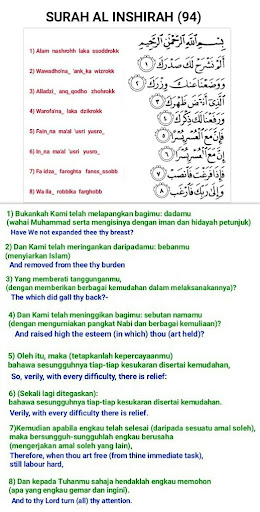 SURAH AL INSHIRAH (94)
بِسْمِ اللَّهِ الرَّحْمَٰنِ الرَّحِيمِ
1) Alam nashrohh laka ssoddrokk
أَلَمْ نَشْرَحْ لَكَ صَدْرَكَ ١
2) Wawadho'na_ 'ank_ka wizrokk
وَوَضَعْنَا عَنكَ وِزْرَكَ ٢
3) Alladzi_ anq_qodho zhohrokk
الَّذِي أَنقَضَ ظَهْرَكَ ٣
4) Warofa'na_ laka dzikrokk
وَرَفَعْنَا لَكَ ذِكْرَكَ ٤
5) Fain_na ma'al 'usri yusro_
فَإِنَّ مَعَ الْعُسْرِ يُسْرًا ٥
6) In_na ma'al 'usri yusro_
إِنَّ مَعَ الْعُسْرِ يُسْرًا ٦
7) Fa idza_ faroghta fanss_ssobb
فَإِذَا فَرَغْتَ فَانصَبْ ٧
8) Wa ila_ robbika farghobb
وَإِلَىٰ رَبِّكَ فَارْغَب ٨
1) Bukankah Kami telah melapangkan bagimu: dadamu
(wahai Muhammad serta mengisinya dengan iman dan hidayah petunjuk)
Have We not expanded thee thy breast?
2) Dan Kami telah meringankan daripadamu: bebanmu
(menyiarkan Islam)
And removed from thee thy burden
3) Yang memberati tanggunganmu,
(dengan memberikan berbagai kemudahan dalam melaksanakannya)?
The which did gall thy back?-
4) Dan Kami telah meninggikan bagimu: sebutan namamu
(dengan mengurniakan pangkat Nabi dan berbagai kemuliaan)?
And raised high the esteem (in which) thou (art held)?
5) Oleh itu, maka (tetapkanlah kepercayaanmu)
bahawa sesungguhnya tiap-tiap kesukaran disertai kemudahan,
So, verily, with every difficulty, there is relief:
6) (Sekali lagi ditegaskan):
bahawa sesungguhnya tiap-tiap kesukaran disertai kemudahan.
Verily, with every difficulty there is relief.
7)Kemudian apabila engkau telah selesai (daripada sesuatu amal soleh),
maka bersungguh-sungguhlah engkau berusaha
(mengerjakan amal soleh yang lain),
Therefore, when thou art free (from thine immediate task),
still labour hard,
8) Dan kepada Tuhanmu sahaja hendaklah engkau memohon
(apa yang engkau gemar dan ingini).
And to thy Lord turn (all) thy attention.